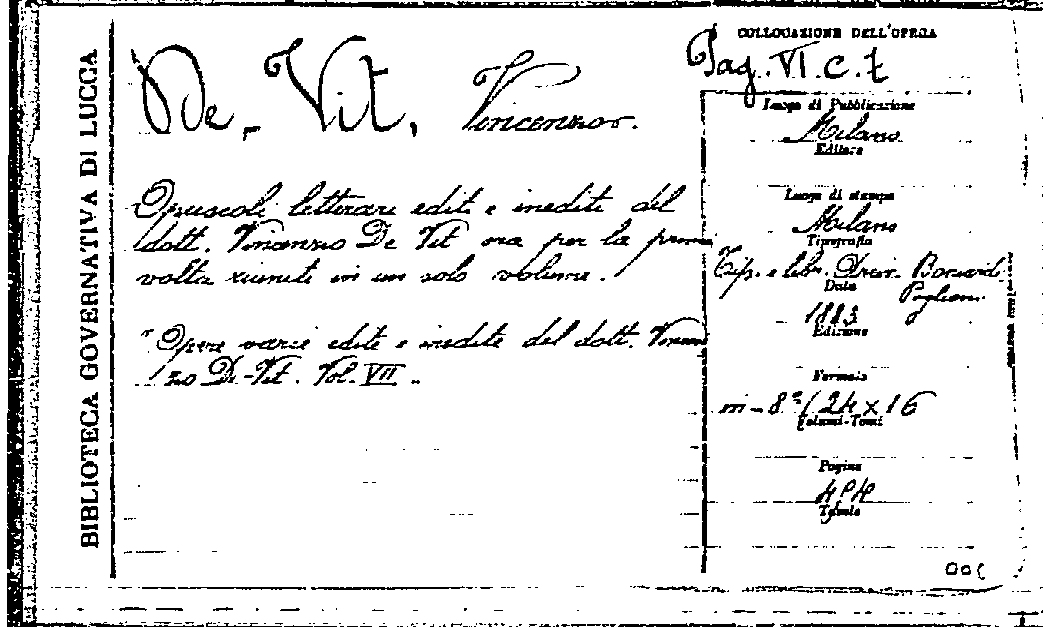 BIBLIOTECA GOVERNATIVA DI LUCCA
De-Vit, Vincenzo.
Opuscoli letterari editi e inediti del
dott. Vincenzo De Vit ora per la prima
volta riuniti in un solo volume.
"Opere varie edite e inedite del dott. Vincen
zo De-Vit. Vol. VII".
COLLOCAZIONE DELL'OPERA
VI. C. 7
Luogo di Pubblicazione
Milano
Editore
Luogo di stampa
Milano
Tipografia
Tip. e libr. Arciv. Boniardi
Pogliani
Data
1883
Edizione
Formato
in-8° (24x16
Volumi-Tomi
Pagine
Tavole